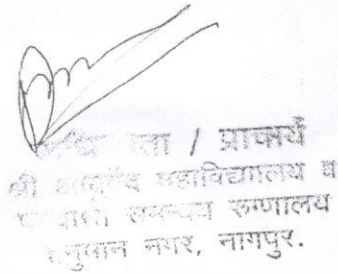 / प्राचार्य
श्री आयुर्वेद महाविद्यालय व
समन्वय रुग्णालय
हनुमान नगर, नागपुर.